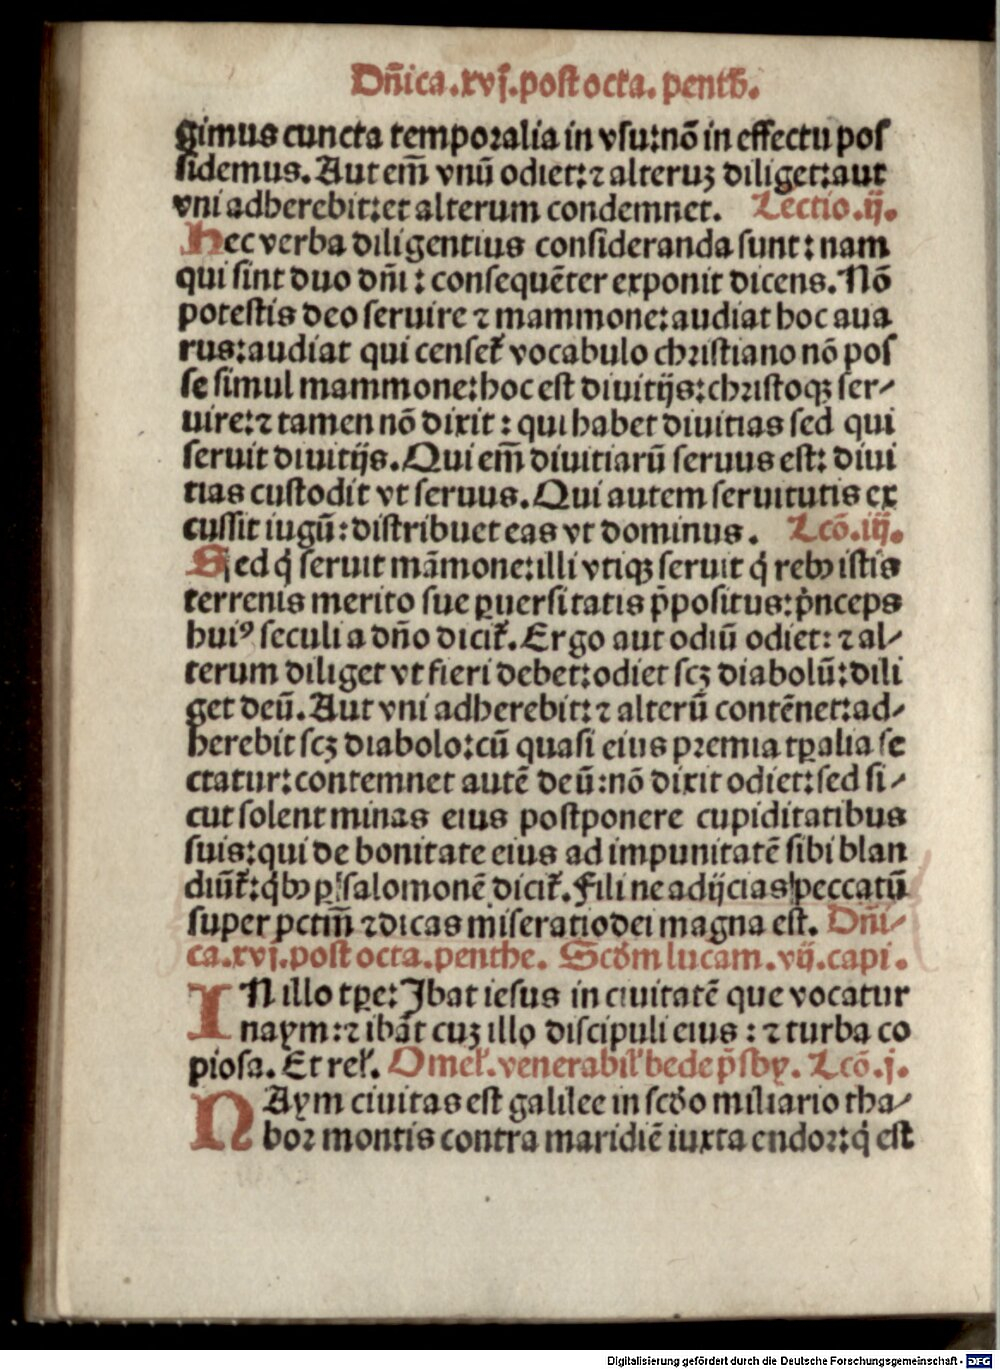 Dn̄ica.xvj.post octa.penth̄.
gimus cuncta temporalia in vsu:nō in effectu pos
sidemus.Aut em̄ vnū odiet:⁊ alteruꝫ diliget:aut
vni adherebit:et alterum condemnet. Lectio.ij.
Hec verba diligentius consideranda sunt:nam
qui sint duo dn̄i:consequēter exponit dicens.Nō
potestis deo seruire ⁊ mammone:audiat hoc aua
rus:audiat qui censet᷑ vocabulo christiano nō pos
se simul mammone:hoc est diuitijs:christoqꝫ ser⸗
uire:⁊ tamen nō dixit:qui habet diuitias sed qui
seruit diuitijs.Qui em̄ diuitiarū seruus est:diui
tias custodit vt seruus.Qui autem seruitutis ex
cussit iugū:distribuet eas vt dominus. Lcō.iij.
Sed q̇ seruit māmone:illi vtiqꝫ seruit q̇ rebꝰ istis
terrenis merito sue ꝑuersitatis p̄positus:pͥnceps
huiꝰ seculi a dn̄o dicit᷑.Ergo aut odiū odiet:⁊ al⸗
terum diliget vt fieri debet:odiet scꝫ diabolū:dili
get deū.Aut vni adherebit:⁊ alterū contēnet:ad⸗
herebit scꝫ diabolo:cū quasi eius premia tꝑalia se
ctatur:contemnet autē deū:nō dixit odiet:sed si⸗
cut solent minas eius postponere cupiditatibus
suis:qui de bonitate eius ad impunitatē sibi blan
diūt᷑:qͥbꝰ ꝑ salomonē dicit᷑.Fili ne adijcias peccatū
super pctm̄ ⁊ dicas miseratio dei magna est. Dn̄i⸗
ca.xvj.post octa.penthe. Scd̄m lucam.vij.capi.
IN illo tꝑe:Ibat iesus in ciuitatē que vocatur
naym:⁊ ibāt cuꝫ illo discipuli eius:⁊ turba co
piosa.Et rel̓. Omel̓.venerabil̓ bede p̄sby. Lcō.j.
NAym ciuitas est galilee in scd̄o miliario tha⸗
bor montis contra maridiē iuxta endor:q̇ est
Digitalisierung gefördert durch die Deutsche Forschungsgemeinschaft - DFG